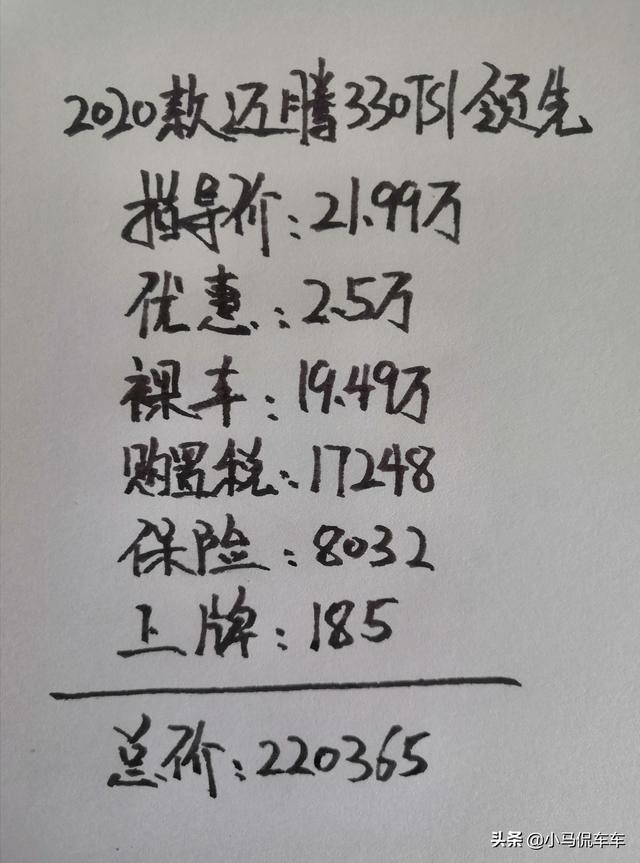 2020款迈腾330TSI领先
指导价:21.99万
优惠:2.5万
裸车:19.49万
购置税:17248
保险:8032
上牌:185
总价:220365
头条 @小马侃车车